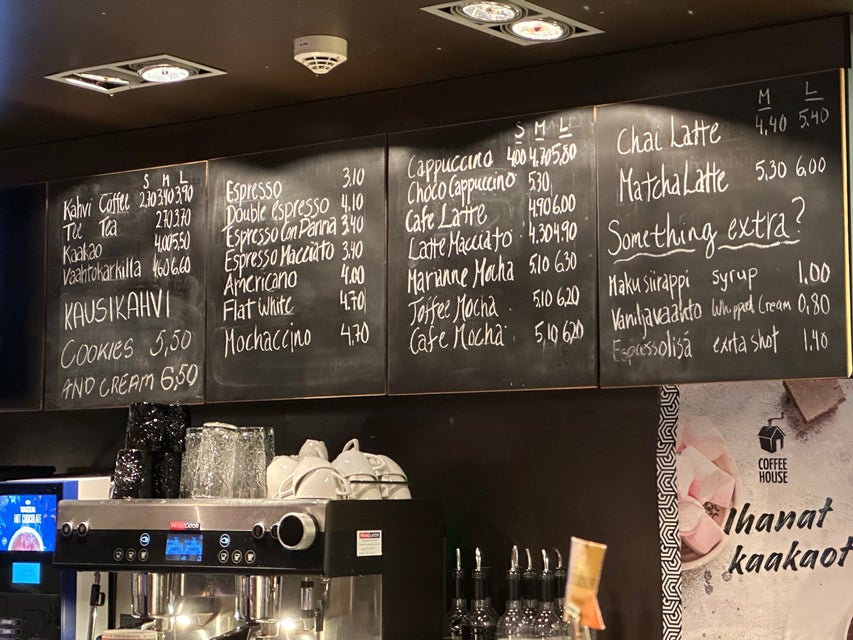 S M L
Kahvi Coffee 2,70 3,40 3,90
Tee Tea 2,70 3,70
Kaakao 4,00 5,50
Vaahtokarkilla 4,60 6,60
KAUSIKAHVI
COOKIES 5,50
AND CREAM 6,50
Espresso 3,10
Double espresso 4,10
Espresso Con Panna 3,40
Espresso Macciato 3,40
Americano 4,00
Flat White 4,70
Mochaccino 4,70
S M L
Cappuccino 4,00 4,70 5,80
Choco Cappuccino 5,30
Cafe Latte 4,90 6,00
Latte Macciato 4,30 4,90
Marianne Mocha 5,10 6,30
Toffee Mocha 5,10 6,20
Cafe Mocha 5,10 6,20
M L
Chai Latte 4,40 5,40
Matcha Latte 5,30 6,00
Something extra?
Maku siirappi syrup 1,00
Vaniljavaahto Whipped Cream 0,80
Espressolisä exrta shot 1,40
COFFEE
HOUSE
Ihanat
kaakaot
HOT CHOCOLATE